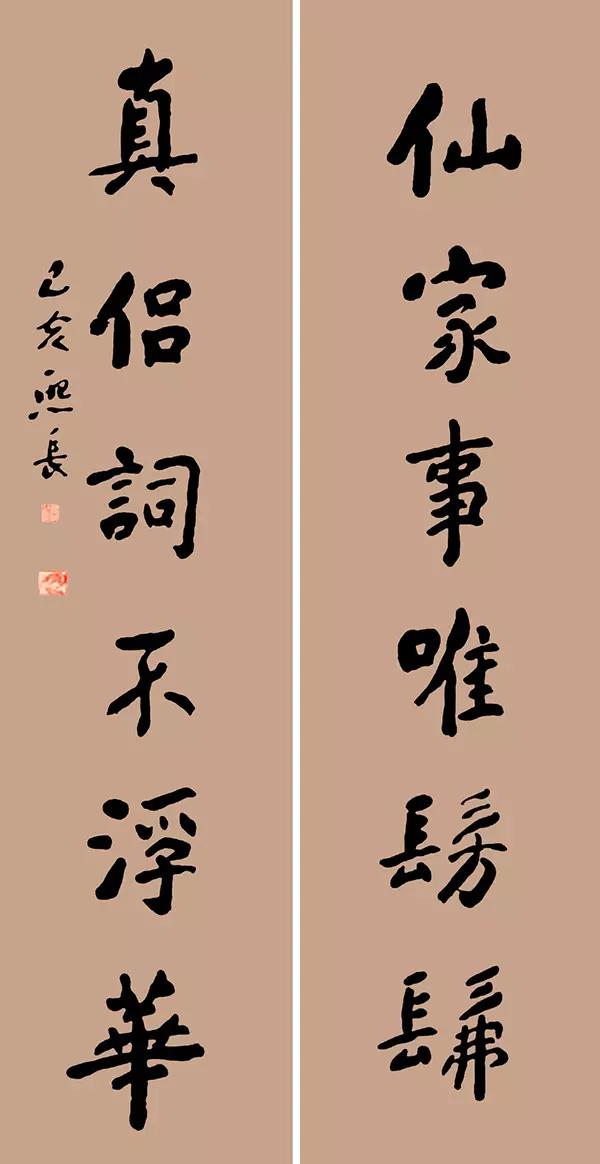 仙家事唯髣髴
真侣詞不浮華
己亥熙長